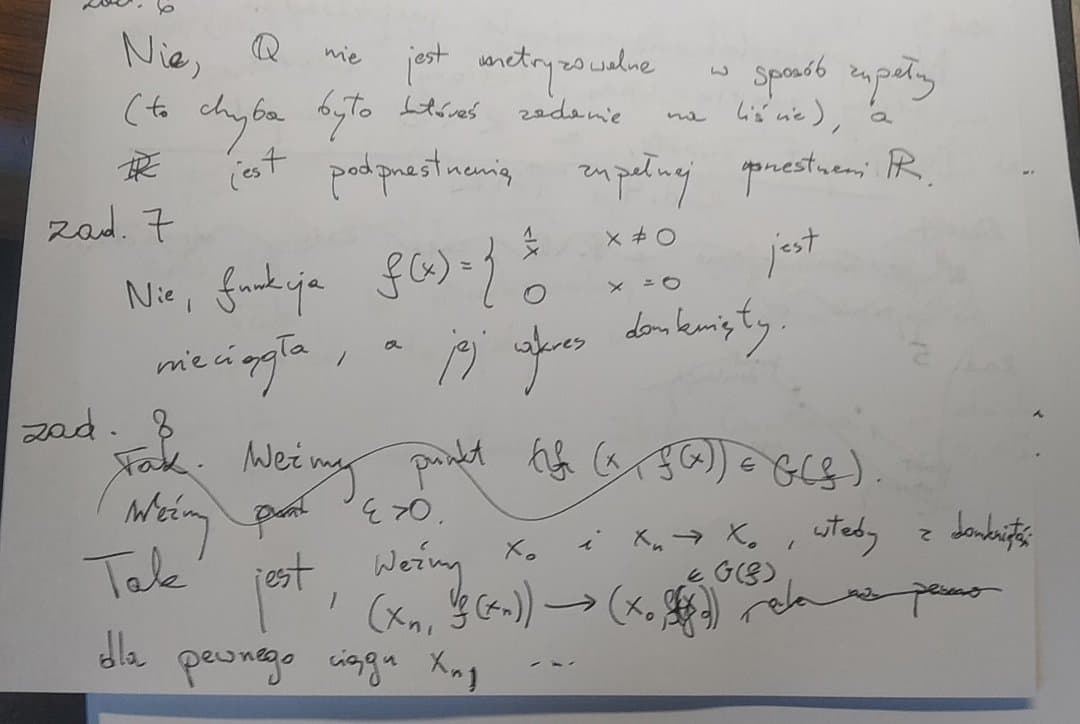 zad. 6
Nie, Q nie jest metryzowalne w sposób zupełny
(to chyba było któreś zadanie na liście), a
jest podprzestrzenią zupełnej przestrzeni R.
zad. 7
Nie, funkcja f(x) = { 1/x x ≠ 0 jest
0 x = 0
nieciągła, a jej wykres domknięty.
zad. 8
Tak. Weźmy punkt (x, f(x)) ∈ G(f).
Weźmy ε > 0.
Tak jest, Weźmy x₀ i xₙ → x₀, wtedy z domkniętości
∈ G(f)
(xₙ, f(xₙ)) → (x₀,
dla pewnego ciągu xₙ, ...